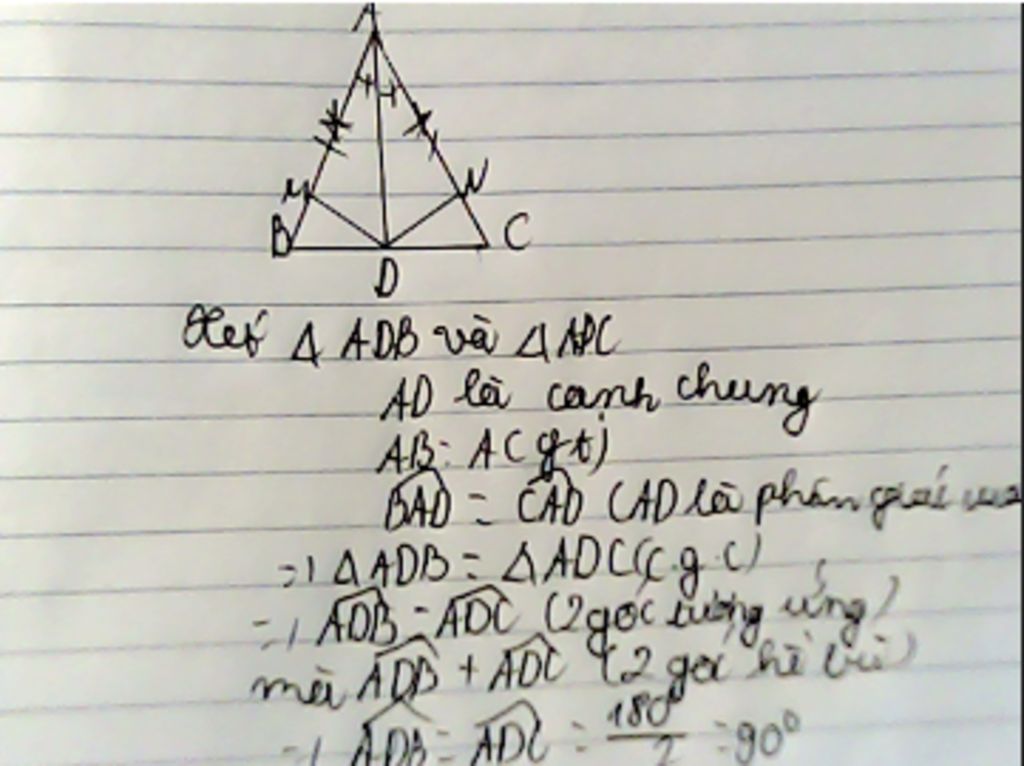 A
M
N
B
C
D
Xét Δ ADB và Δ ADC
AD là cạnh chung
AB = AC (gt)
BAD = CAD (AD là phân giác
=> Δ ADB = Δ ADC (c.g.c)
=> ADB = ADC (2 góc tương ứng)
mà ADB + ADC (2 góc kề bù)
=> ADB = ADC = 180° / 2 = 90°